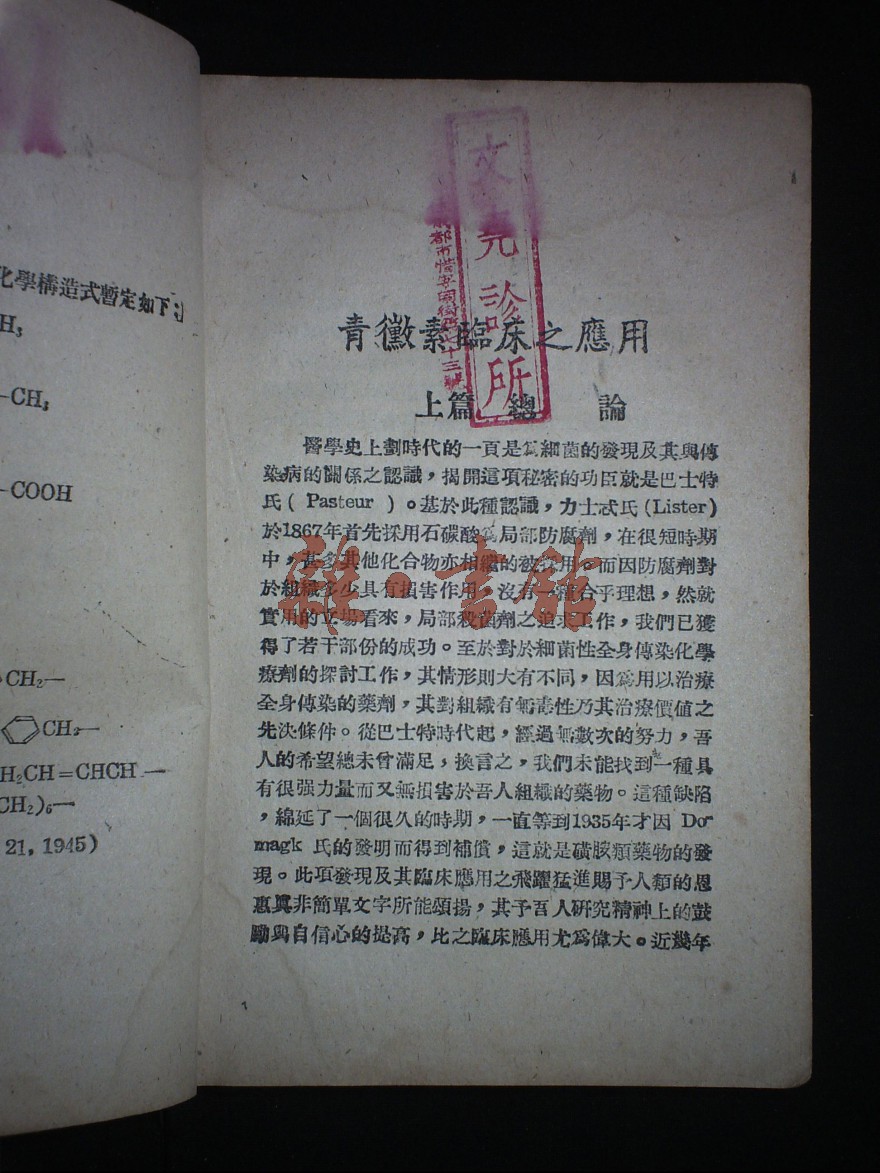 化學構造式暫定如下:
H₃
—CH₃
—COOH
CH₂—
CH₂—
H₂CH=CHCH—
CH₂)₆—
21, 1945)
青黴素臨床之應用
上篇 總 論
醫學史上劃時代的一頁是爲細菌的發現及其與傳
染病的關係之認識，揭開這項秘密的功臣就是巴士特
氏( Pasteur )。基於此種認識，力士忒氏(Lister)
於1867年首先採用石碳酸爲局部防腐劑，在很短時期
中，甚多其他化合物亦相繼的被採用。而因防腐劑對
於組織多少具有損害作用，沒有一種合乎理想，然就
實用的立場看來，局部殺菌劑之追求工作，我們已獲
得了若干部份的成功。至於對於細菌性全身傳染化學
療劑的探討工作，其情形則大有不同，因爲用以治療
全身傳染的藥劑，其對組織有無毒性乃其治療價值之
先決條件。從巴士特時代起，經過無數次的努力，吾
人的希望總未曾滿足，換言之，我們未能找到一種具
有很强力量而又無損害於吾人組織的藥物。這種缺陷
，綿延了一個很久的時期，一直等到1935年才因 Dor-
magk 氏的發明而得到補償，這就是磺胺類藥物的發
現。此項發現及其臨床應用之飛躍猛進賜予人類的恩
惠眞非簡單文字所能頌揚，其予吾人研究精神上的鼓
勵與自信心的提高，比之臨床應用尤爲偉大。近幾年
文堯診所
都市惜字宮街 十三號
雜·書館
1